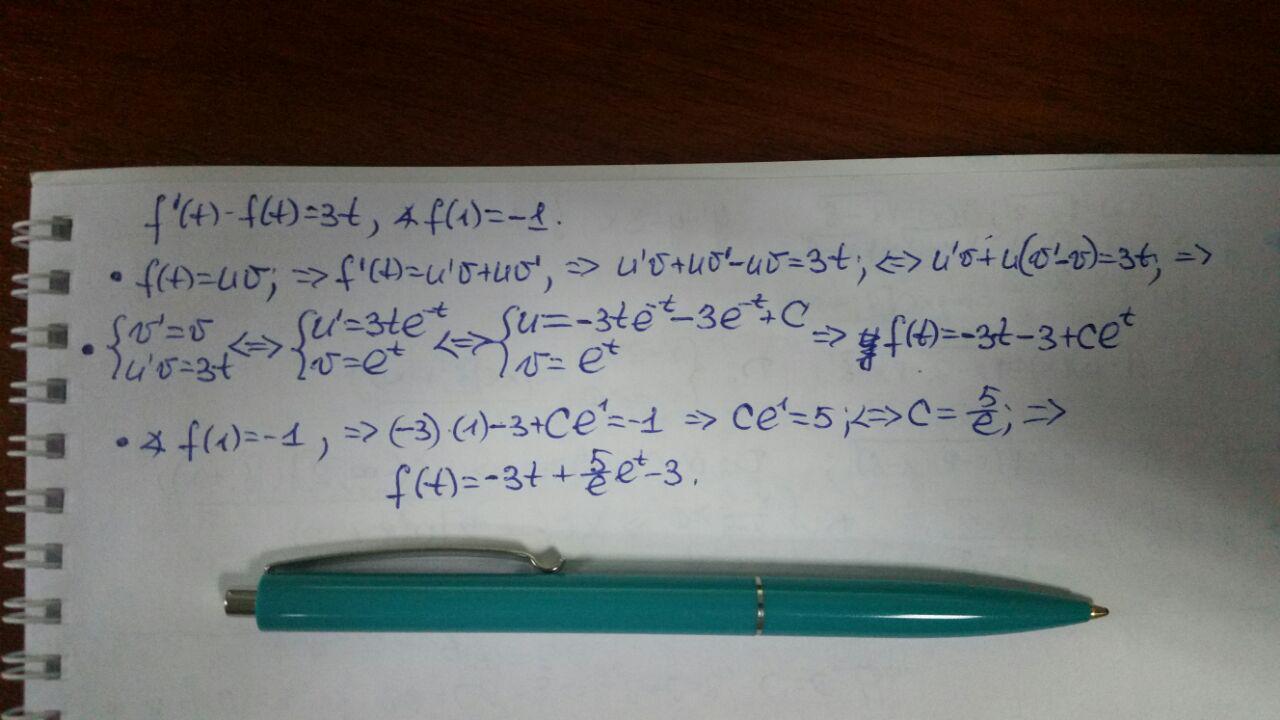 f'(t)-f(t)=3t, ∢ f(1)=-1.
• f(t)=uv; ⇒ f'(t)=u'v+uv', ⇒ u'v+uv'-uv=3t; ⇔ u'v+u(v'-v)=3t; ⇒
• {v'=v u'v=3t ⇔ {u'=3te^{-t} v=e^t ⇔ {u=-3te^{-t}-3e^{-t}+C v=e^t ⇒ f(t)=-3t-3+Ce^t
• ∢ f(1)=-1, ⇒ (-3)·(1)-3+Ce^1=-1 ⇒ Ce^1=5; ⇔ C=5/e; ⇒
f(t)=-3t+5/e e^t-3.